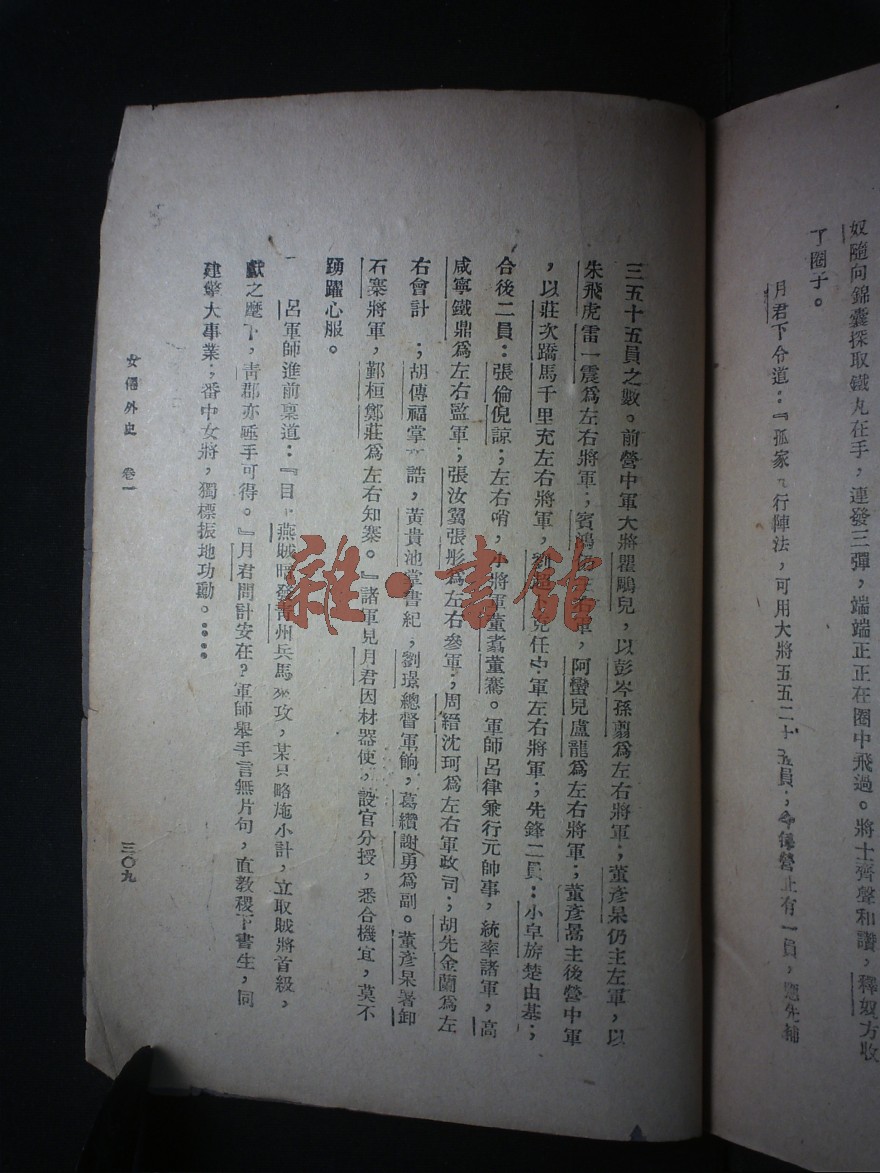 奴隨向錦囊探取鐵丸在手，連發三彈，端端正正在圈中飛過。將士齊聲和讚，釋奴方收
了圈子。
月君下令道：『孤家行陣法，可用大將五五二十五員；今後營止有一員，應先補
三五十五員之數。前營中軍大將瞿鵰兒，以彭岑孫翦爲左右將軍；董彥杲仍主左軍，以
朱飛虎雷一震爲左右將軍；賓鴻軍，阿蠻兒盧龍爲左右將軍；董彥暠主後營中軍
，以莊次蹻馬千里充左右將軍，劉兒任中軍左右將軍；先鋒二員：小皁旂楚由基；
合後二員：張倫倪諒；左右哨，小將軍董翥董騫。軍師呂律兼行元帥事，統率諸軍，高
咸寧鐵鼎爲左右監軍；張汝翼張彤爲左右參軍；周縉沈珂爲左右軍政司；胡先金蘭爲左
右會計；胡傳福掌誥，黃貴池掌書紀，劉璟總督軍餉，葛纘謝勇爲副。董彥杲署卸
石寨將軍，鄞桓鄭莊爲左右知寨。』諸軍見月君因材器使，設官分授，悉合機宜，莫不
踴躍心服。
呂軍師進前稟道：『目，燕賊暗發青州兵馬來攻，某只略施小計，立取賊將首級，
獻之麾下，靑郡亦唾手可得。』月君問計安在？軍師舉手言無片句，直教稷下書生，同
建擎大事業；番中女將，獨標振地功勳。……
女僊外史　卷一
三〇九
雜·書館